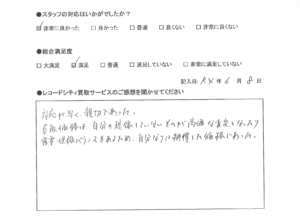 ●スタッフの対応はいかがでしたか？
☑非常に良かった □良かった □普通 □良くない □非常に良くない
●総合満足度
□大満足 ☑満足 □普通 □満足していない □非常に満足していない
記入日: R4年6月8日
●レコードシティ買取サービスのご感想を聞かせてください
対応が早く、親切であった。
買取価格は、自分の想像していないものが高価な査定となったり
ということもあるため、自分なりに納得した価格であった。